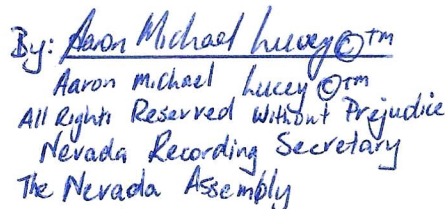 By: Aaron Michael Lucey©™
Aaron Michael Lucey ©™
All Rights Reserved Without Prejudice
Nevada Recording Secretary
The Nevada Assembly